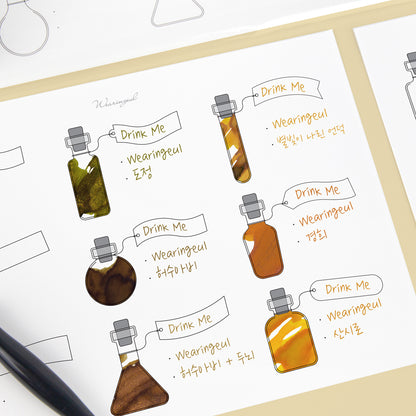 Wearingeul
Drink Me
· Wearingeul
· 도정
Drink Me
· Wearingeul
· 별빛이 나린 언덕
Drink Me
· Wearingeul
· 허수아비
Drink Me
· Wearingeul
· 경희
Drink Me
· Wearingeul
· 허수아비 + 두뇌
Drink Me
· Wearingeul
· 산시로